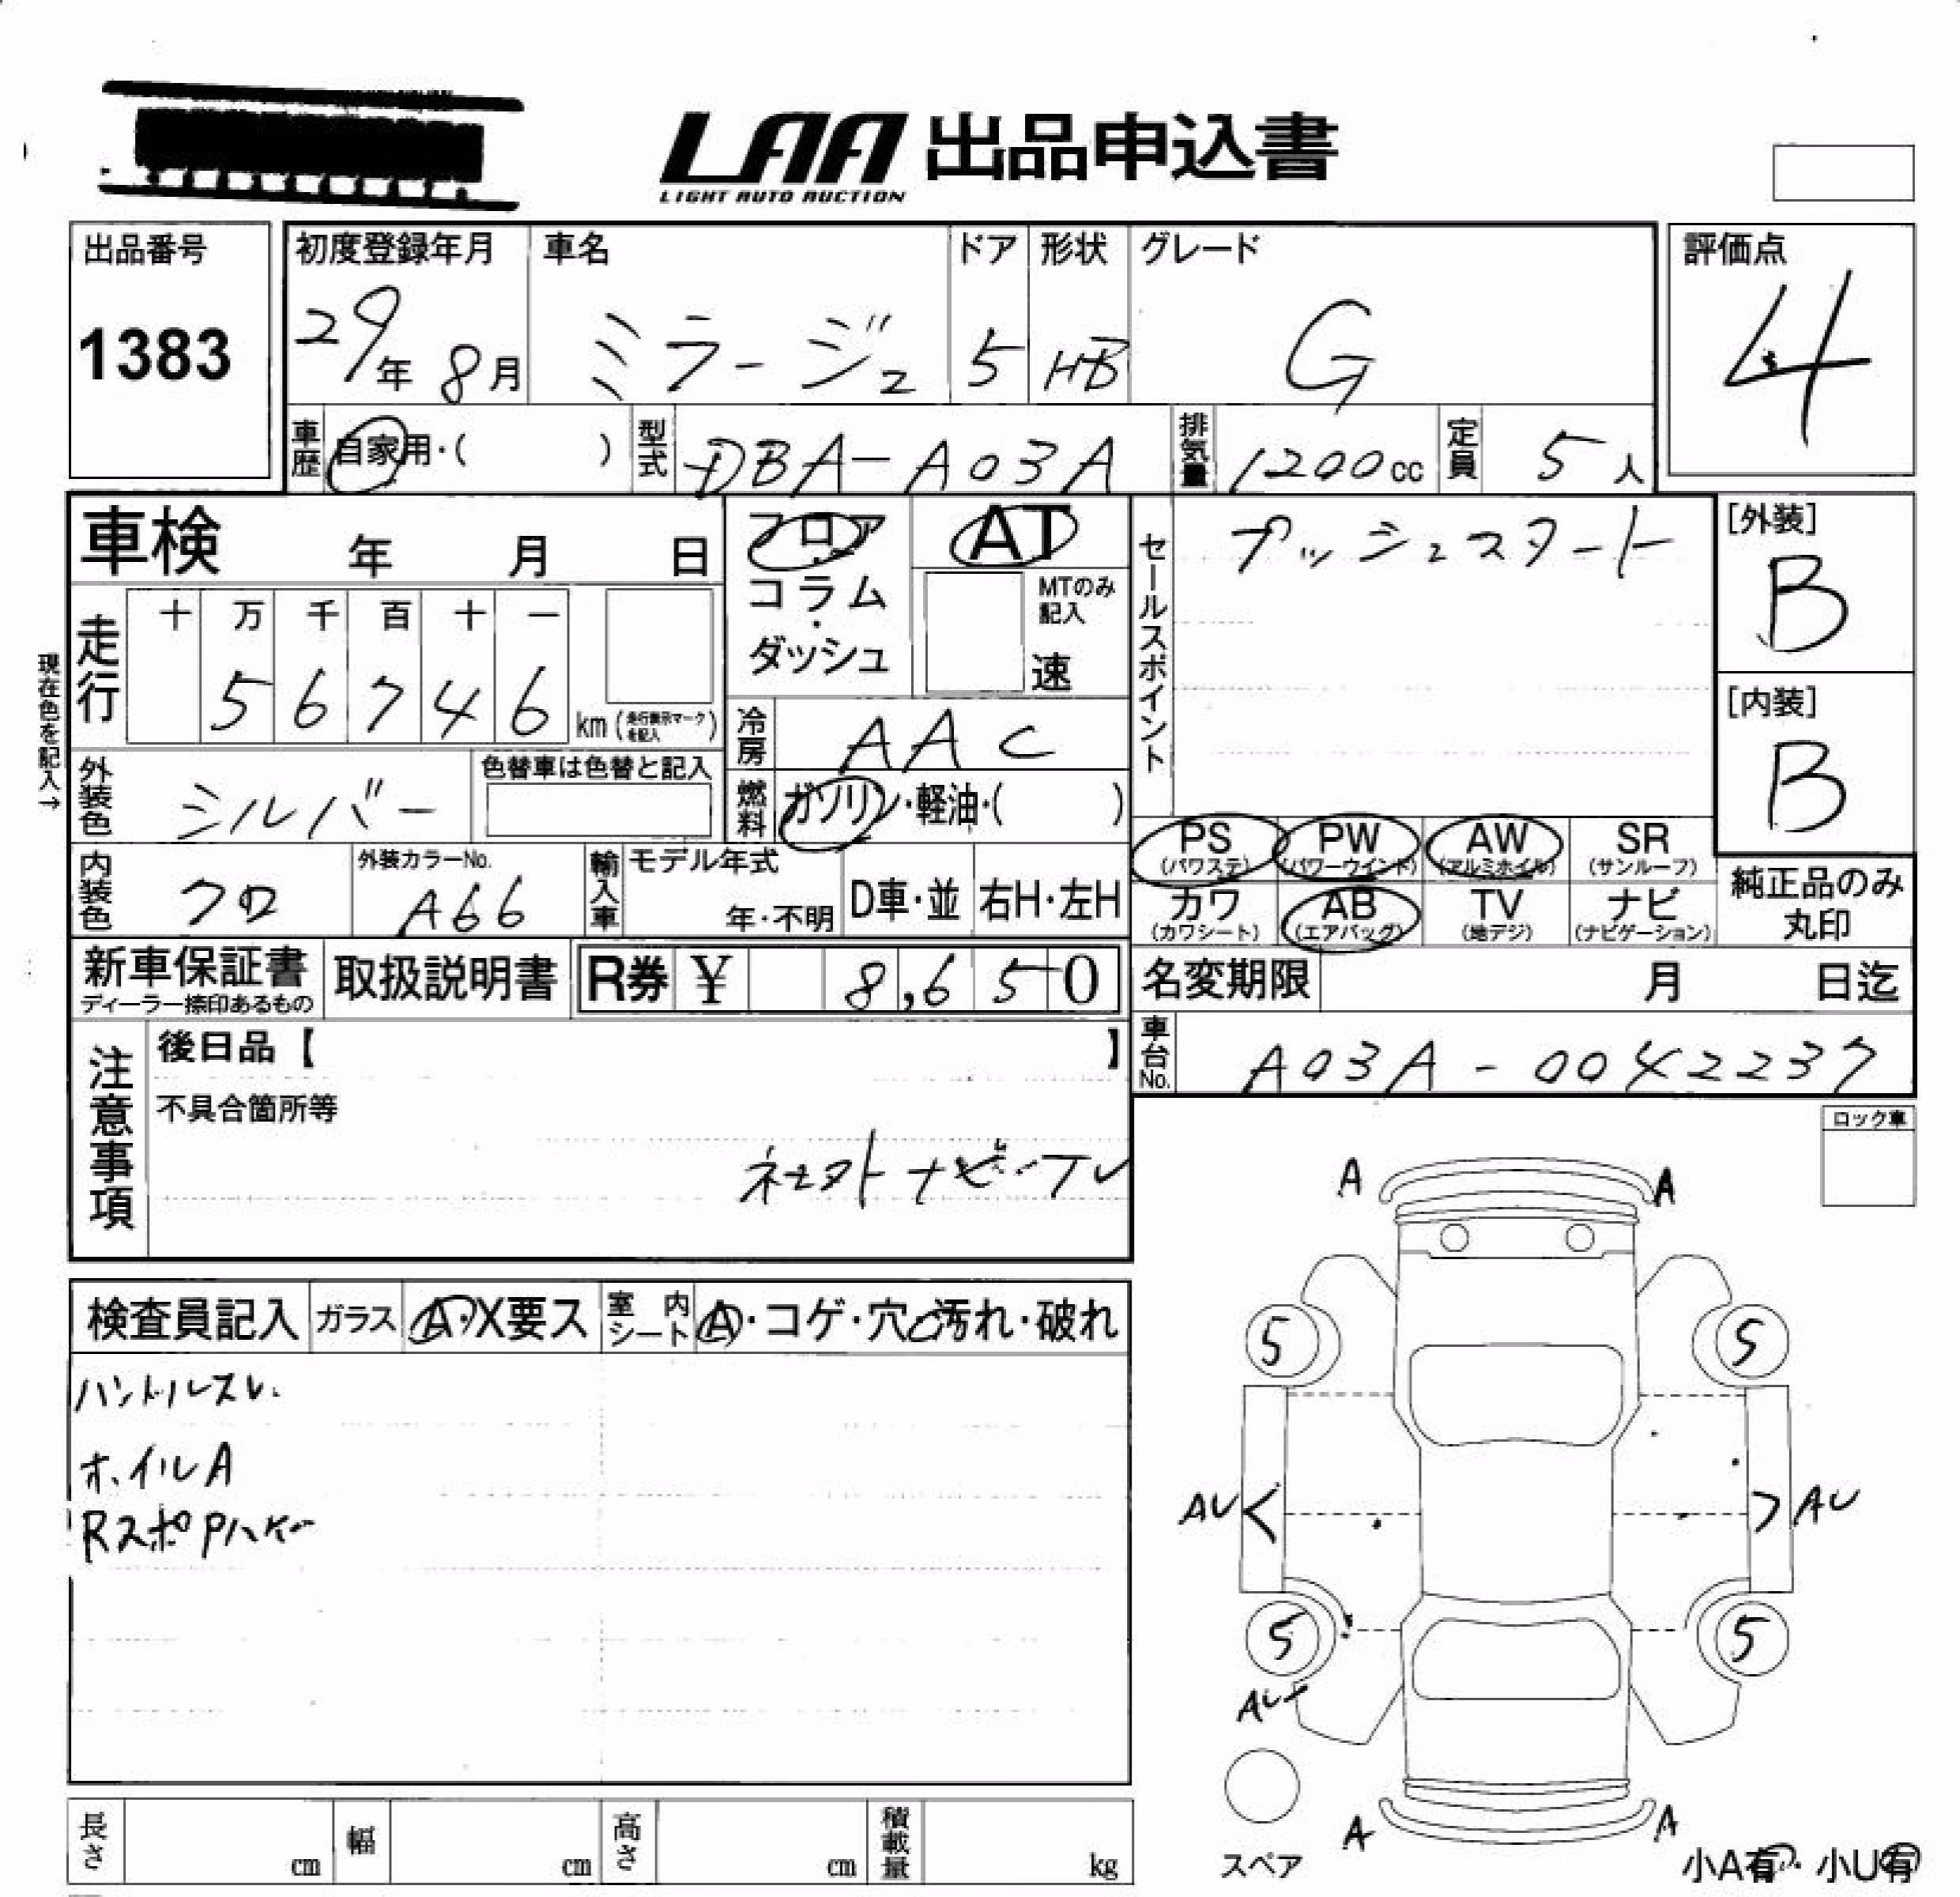 LAA 出品申込書
LIGHT AUTO AUCTION
出品番号 初度登録年月 車名 ドア 形状 グレード 評価点
1383 29年 8月 ミラージュ 5 HB G 4
車歴 自家用・( ) 型式 DBA-A03A 排気量 1200cc 定員 5人
車検 年 月 日
フロア・コラム・ダッシュ
AT
MTのみ記入
速
セールスポイント プッシュスタート
[外装]
B
[内装]
B
現在色を記入→
走行 十 万 千 百 十 一
5 6 7 4 6 km (走行表示マークを記入)
冷房 AAC
外装色 シルバー 色替車は色替と記入
燃料 ガソリン・軽油・( )
PS (パワステ) PW (パワーウインド) AW (アルミホイル) SR (サンルーフ)
カワ (カワシート) AB (エアバッグ) TV (地デジ) ナビ (ナビゲーション)
純正品のみ丸印
内装色 クロ 外装カラーNo. A66 輸入車 モデル年式 年・不明 D車・並 右H・左H
新車保証書 ディーラー捺印あるもの 取扱説明書 R券 ¥ 8,650
名変期限 月 日迄
車台No. A03A-0042237
注意事項 後日品【 】
不具合箇所等
ナビ・TV
ロック車
検査員記入 ガラス A・X要ス 室内シート A・コゲ・穴・汚れ・破れ
ハンドルスレ
ホイルA
Rスポ
A A
5 5
AU AU
5 5
AU
A A
スペア
小A有・小U有
長さ cm 幅 cm 高さ cm 積載量 kg